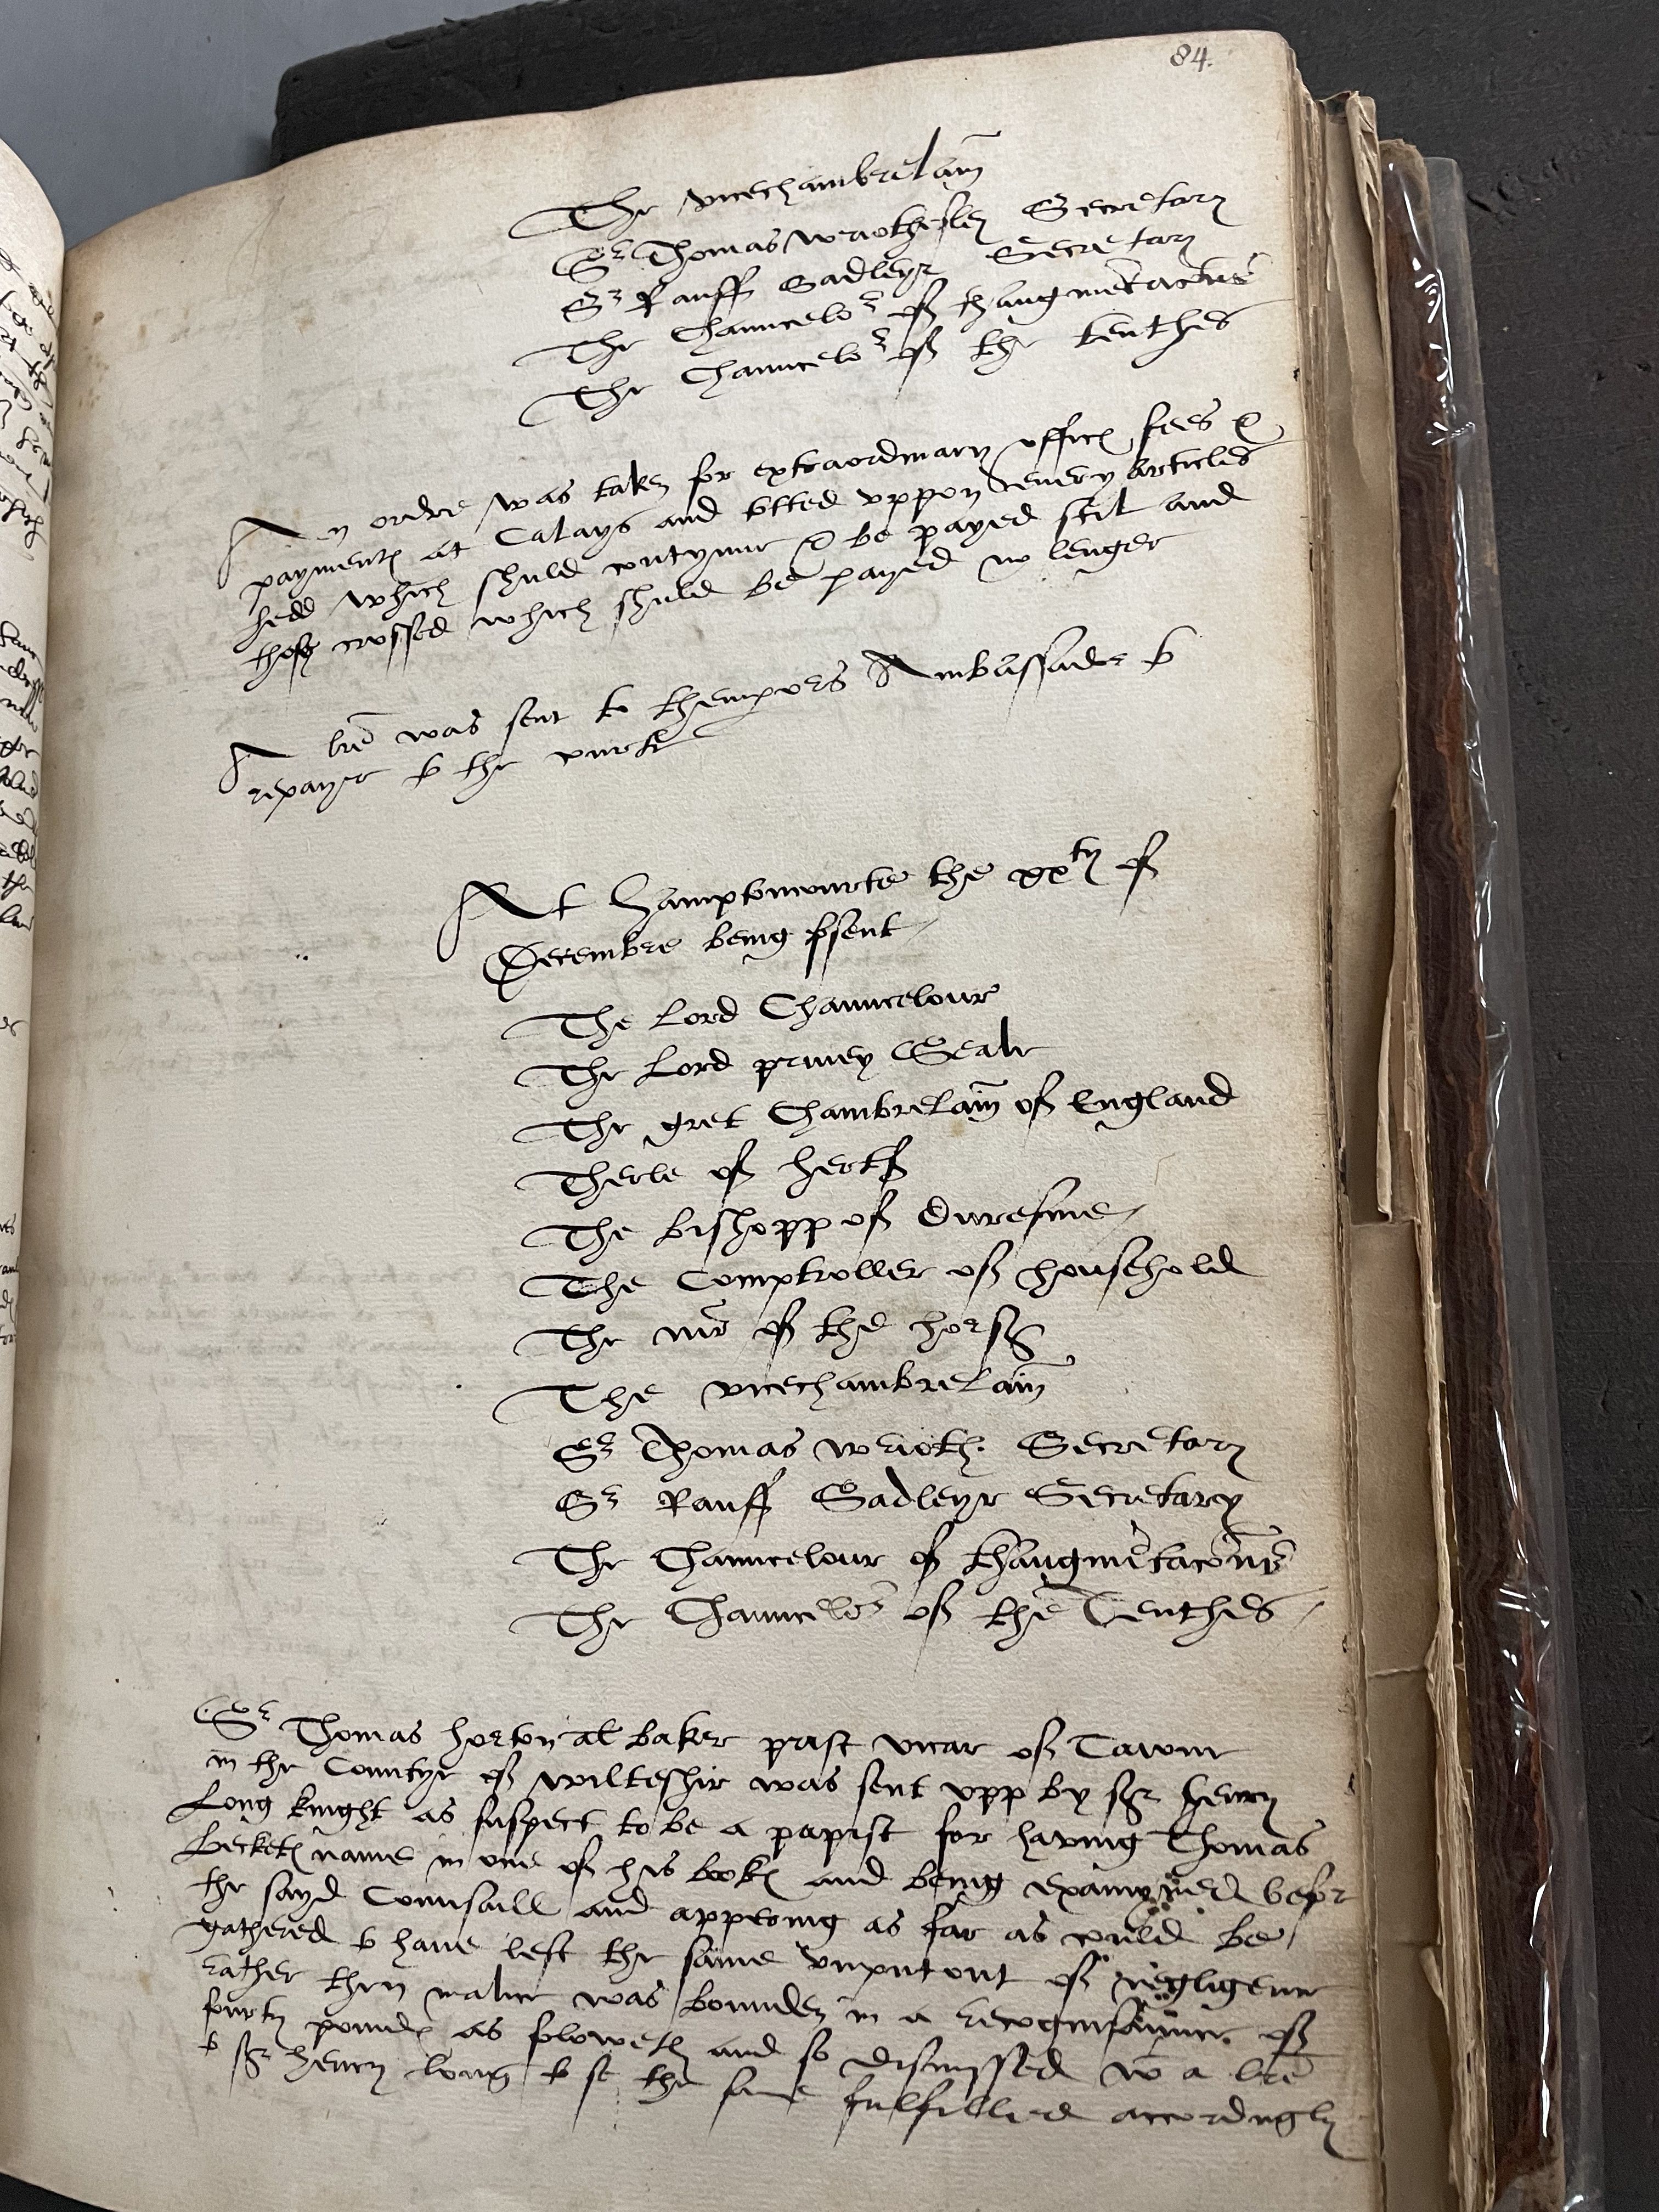 84.
The vicechambrelaĩn
Sr Thomas wriothesley Secretary
Sr Rauff Sadleyr Secretary
The Chauncelor of thaugmẽtacõns
The Chauncelor of the tenthes
An ordre was taken for extraordinary offices fees &
payments at Calays and totted uppon every articles
hedd which shuld contynue & be payed stil and
those crossed which shuld be payed no lenger
A lrẽ was sent to themperors Ambassader to
repayre to the courte
At Hamptoncourte the xxty of
Decembre being psent
The Lord Chauncelour
The Lord privey Seale
The gret Chambrelaĩn of England
Therle of hertf
The bishopp of Duresme
The Comptroller of household
The mr of the horse
The vicechambrelaĩn
Sr Thomas wrioth. Secretary
Sr Rauff Sadleyr Secretary
The Chauncelour of thaugmẽtacõns
The Chauncelor of the Tenthes
Sr Thomas horton al baker prist vicar of
in the Countye of wilteshir was sent upp by sr henry
Long knight as suspect to be a papist for having Thomas
Beckets name in one of his books and being examyned before
the sayd Counsaill and appering as far as could be
gathered to have left the same unput out of negligence
rather then malice was bounden in a recognisaunce of
fourty pounds as foloweth and so dismissed wt a lrẽ
to sr henry long to se the same fulfilled accordingly